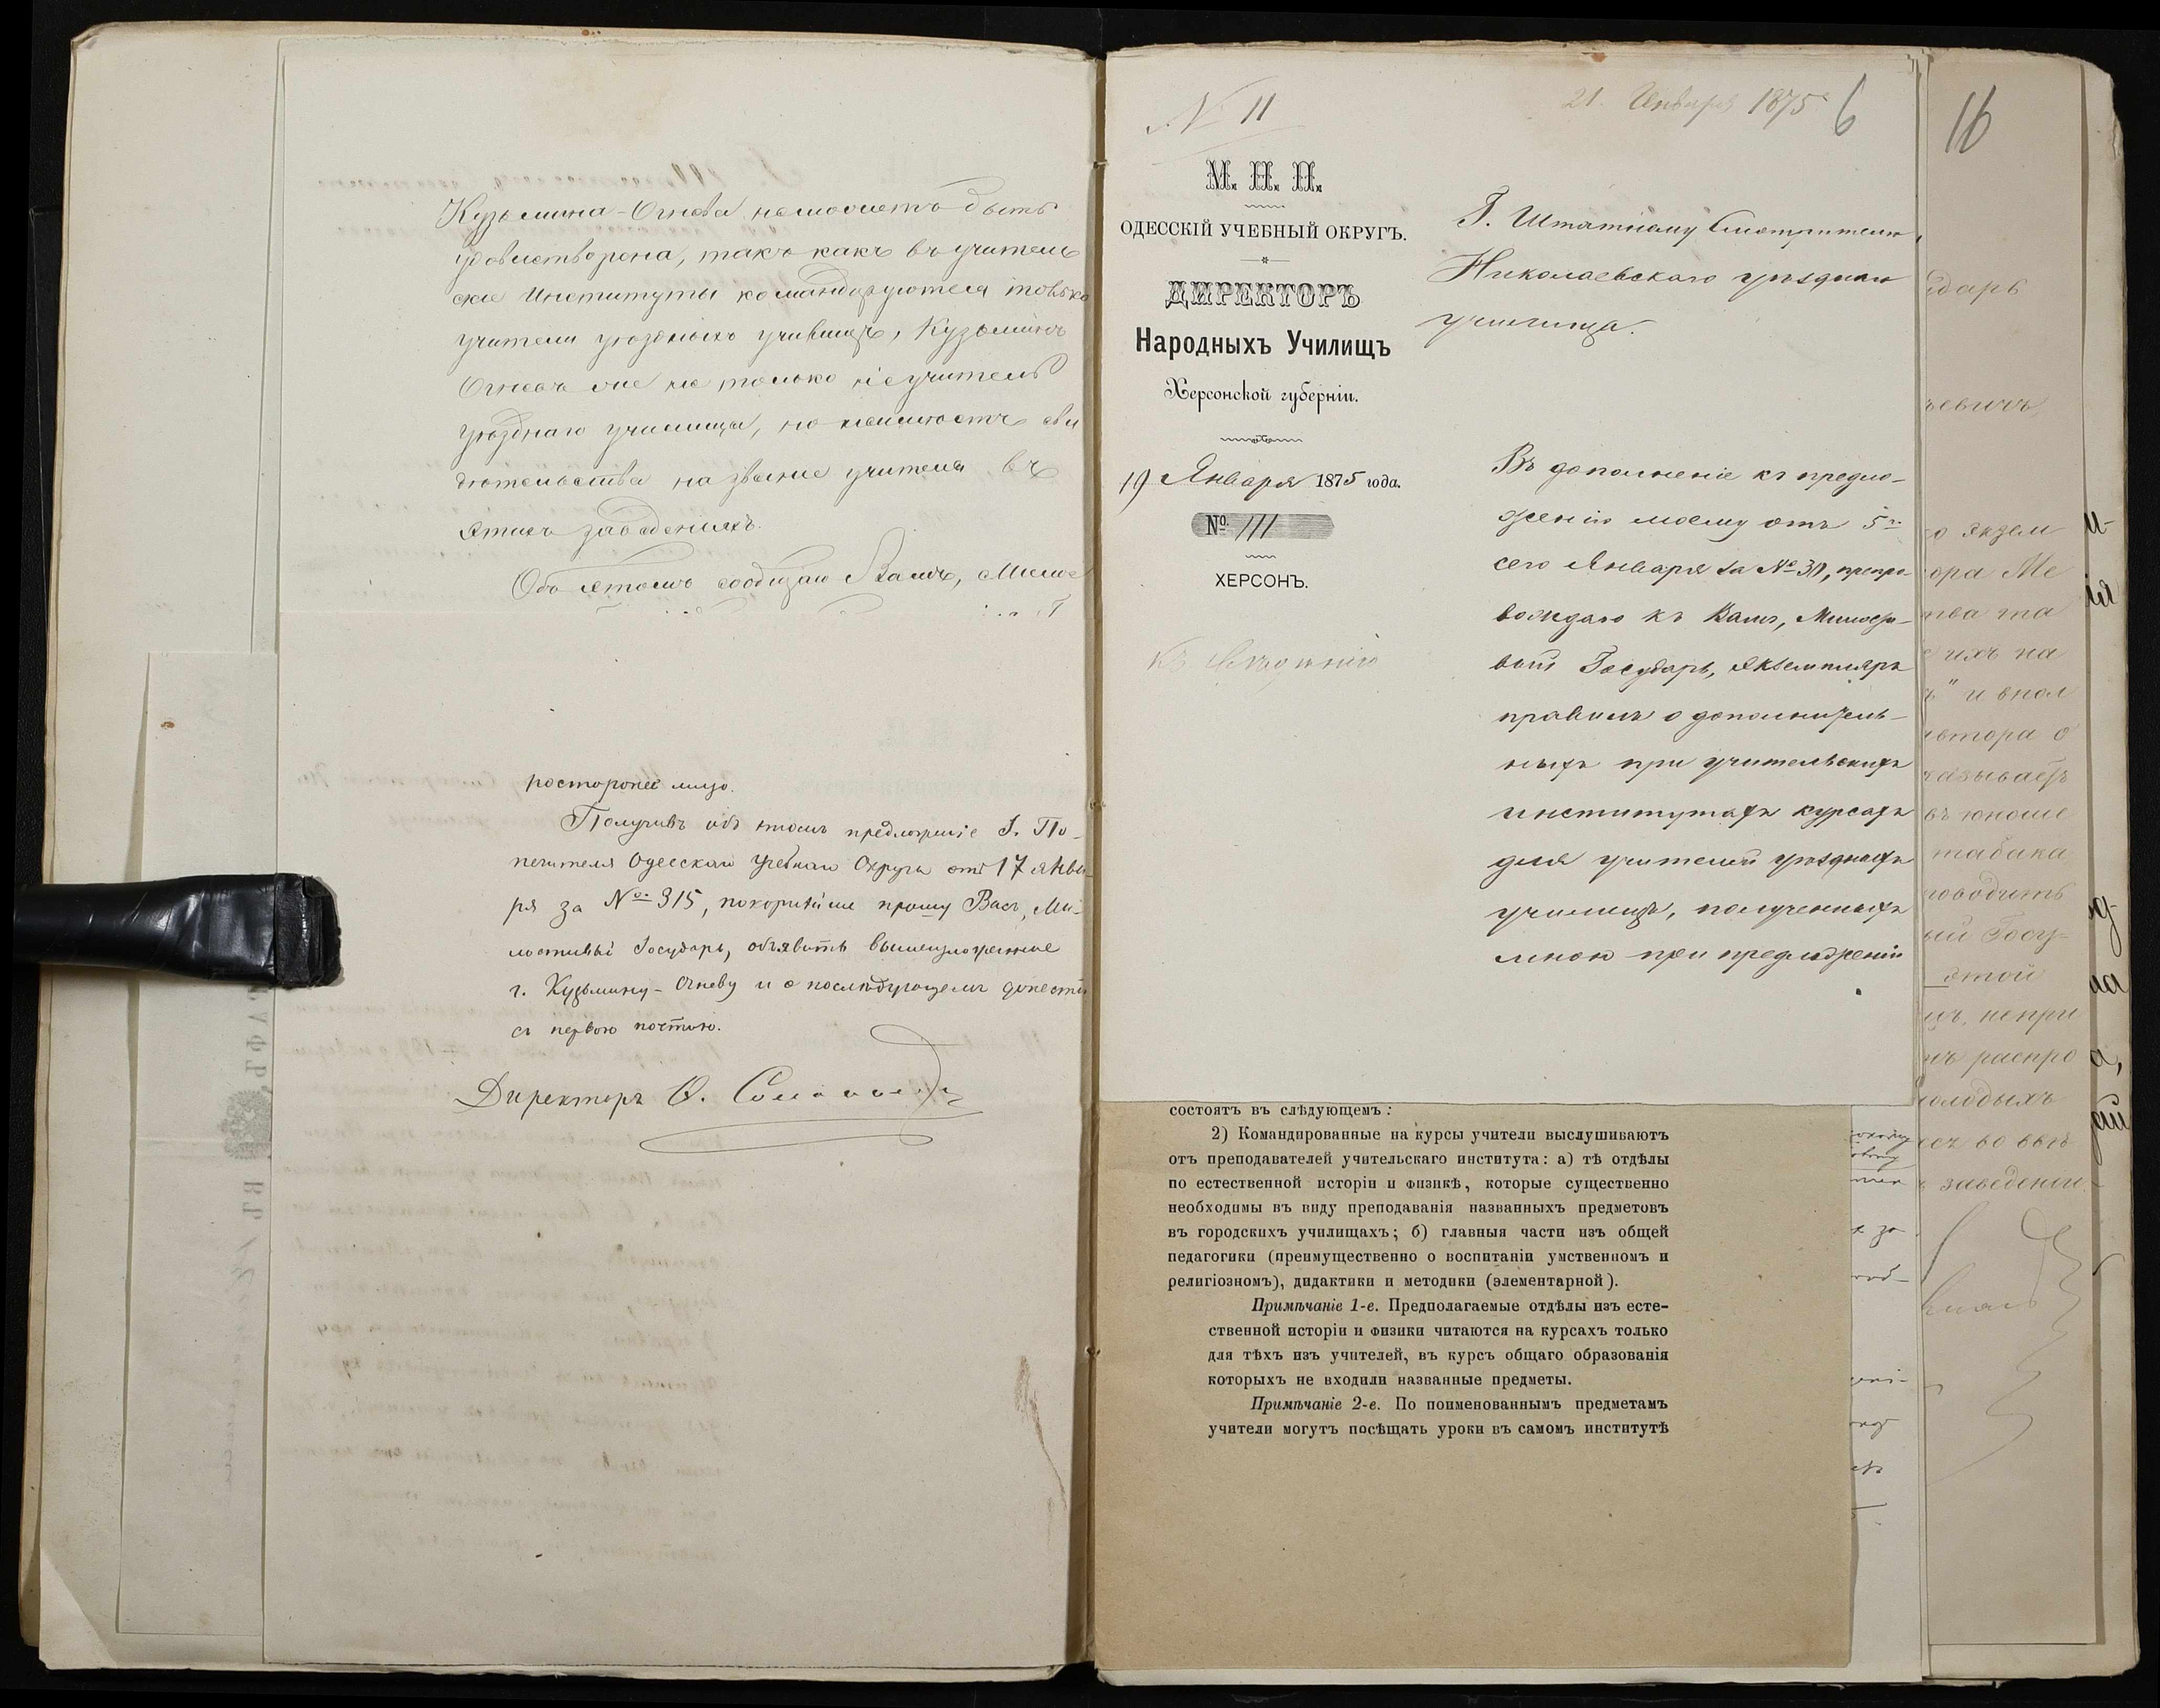 Кузьмина-Огнева неможетъ быть
удовлетворена, такъ какъ въ учитель
ские Институты командируются только
учители уѣздныхъ училищъ, Кузьминъ
Огневъ же не только не учитель
уѣзднаго училища, но неимѣетъ сви
дѣтельства на званіе учителя въ
этихъ заведеніяхъ.
Объ этомъ сообщаю Вамъ, Милос
росторонее лицо.
Получивъ объ этомъ предложеніе Г. По-
печителя Одесскаго Учебнаго Округа отъ 17 Янва-
ря за № 315, покорнѣйше прошу Васъ, Ми-
лостивый Государь, объявить вышеизложенное
г. Кузьмину-Огневу и о послѣдующемъ донести
съ первою почтою.
Директоръ
№ 11
21. Января 1875 6
М. Н. П.
ОДЕССКІЙ УЧЕБНЫЙ ОКРУГЪ.
ДИРЕКТОРЪ
Народныхъ Училищъ
Херсонской губерніи.
19 Января 1875 года.
№ 111
ХЕРСОНЪ.
Г. Штатному Смотрителю
Николаевскаго уѣзднаго
училища.
Въ дополненіе къ предло-
женію моему отъ 5го
сего Января за № 30, препро-
вождаю къ Вамъ, Милости-
вый Государь, экземпляръ
правилъ о дополнитель-
ныхъ при учительскихъ
институтахъ курсахъ
для учителей уѣздныхъ
училищъ, полученныхъ
мною при предложеніи
состоятъ въ слѣдующемъ:
2) Командированные на курсы учители выслушиваютъ
отъ преподавателей учительскаго института: а) тѣ отдѣлы
по естественной исторіи и физикѣ, которые существенно
необходимы въ виду преподаванія названныхъ предметовъ
въ городскихъ училищахъ; б) главныя части изъ общей
педагогики (преимущественно о воспитаніи умственномъ и
религіозномъ), дидактики и методики (элементарной).
Примѣчаніе 1-е. Предполагаемые отдѣлы изъ есте-
ственной исторіи и физики читаются на курсахъ только
для тѣхъ изъ учителей, въ курсъ общаго образованія
которыхъ не входили названные предметы.
Примѣчаніе 2-е. По поименованнымъ предметамъ
учители могутъ посѣщать уроки въ самомъ институтѣ
16
дарь
евичъ
экзем
ора Ме
тва та
ихъ на
ъ" и впол
автора о
казываетъ
въ юноше
табака
оводить
ый Госу-
этой
непри
распро
молодыхъ
заведеніи